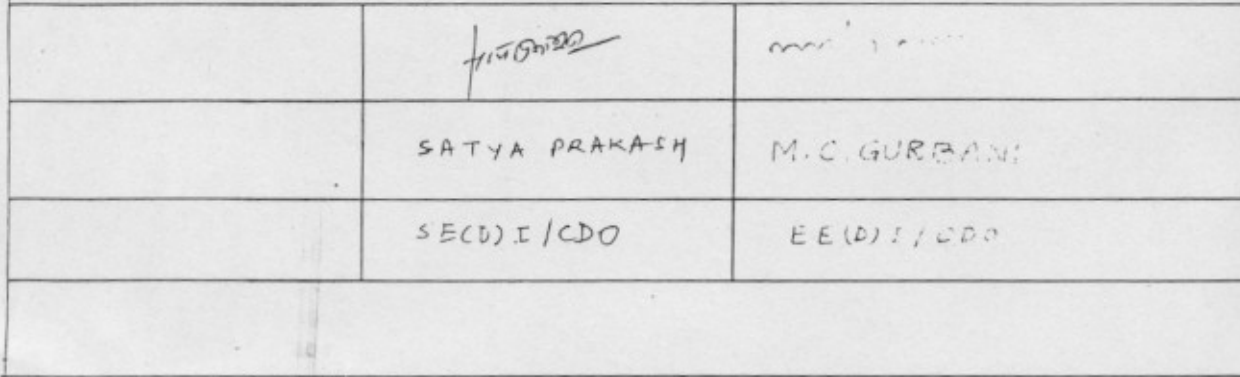 SATYA PRAKASH M.C. GURBANI
SE(D) I / CDO EE(D) I / CDO